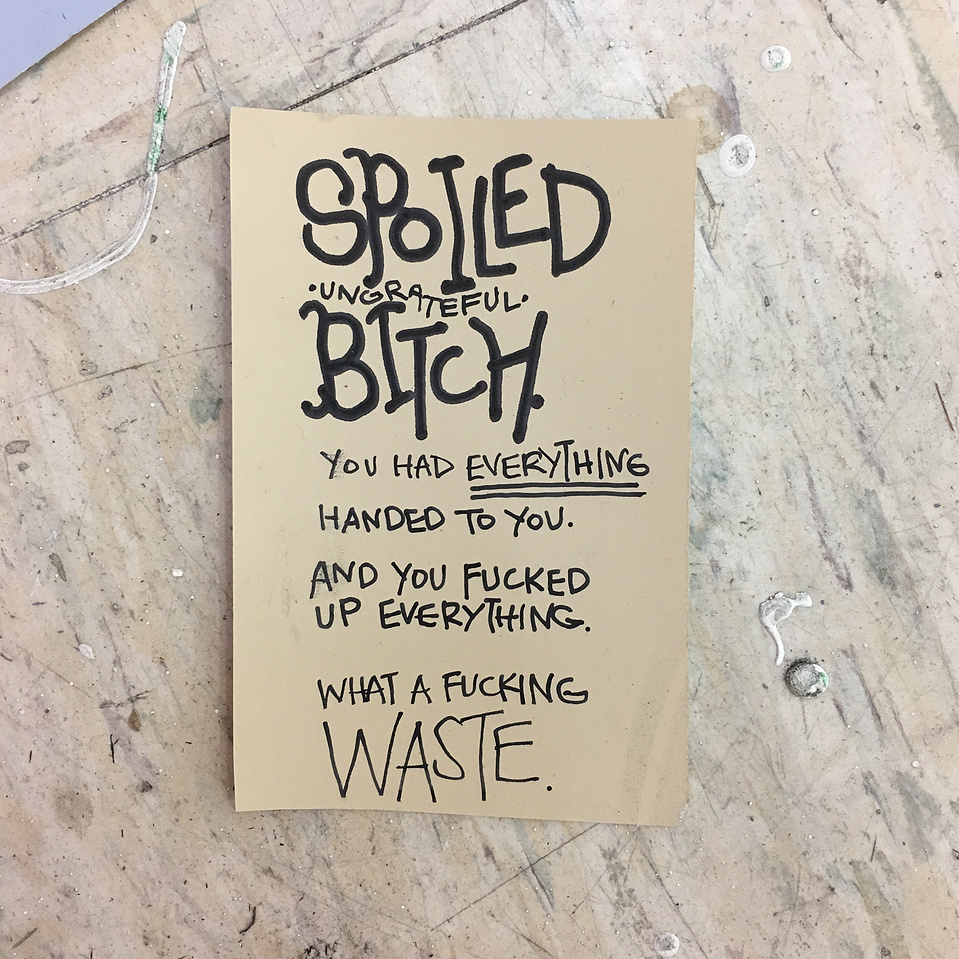 SPOILED
·UNGRATEFUL·
BITCH.
YOU HAD EVERYTHING
HANDED TO YOU.
AND YOU FUCKED
UP EVERYTHING.
WHAT A FUCKING
WASTE.